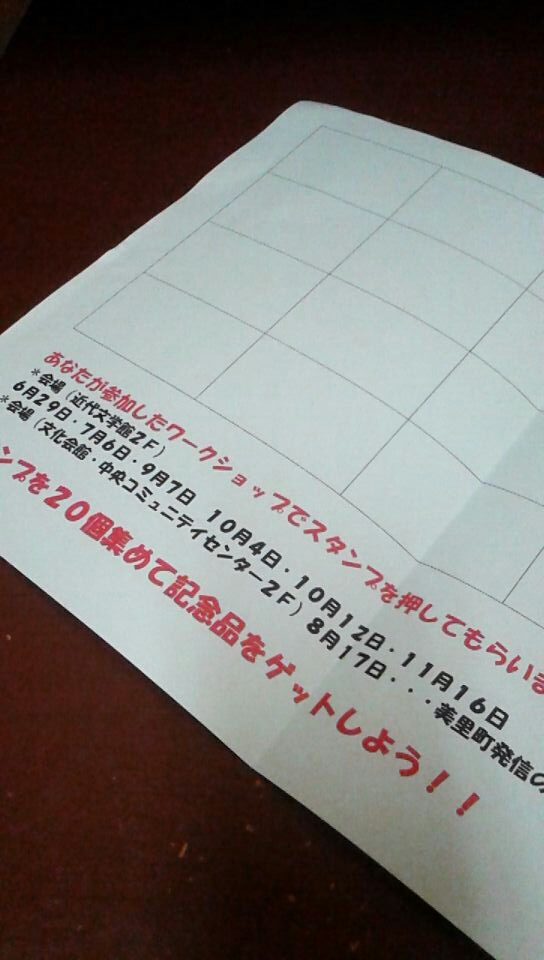 あなたが参加したワークショップでスタンプを押してもらいま
*会場（近代文学館２Ｆ）
６月２９日・７月６日・９月７日　１０月４日・１０月１２日・１１月１６日
*会場（文化会館・中央コミュニテイセンター２Ｆ）８月１７日・・・美里町発信の
ンプを２０個集めて記念品をゲットしよう！！